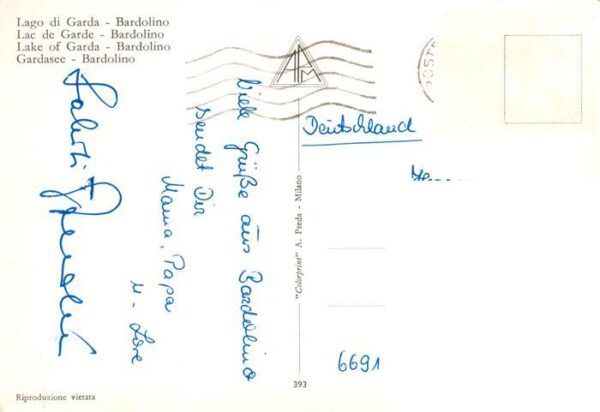 Lago di Garda - Bardolino
Lac de Garde - Bardolino
Lake of Garda - Bardolino
Gardasee - Bardolino
Viele Grüße aus Bardolino
sendet Dir
Mama, Papa
u - Lore
Saluti
"Colorprint" A. Preda - Milano
Deutschland
6691
393
Riproduzione vietata
POSTE